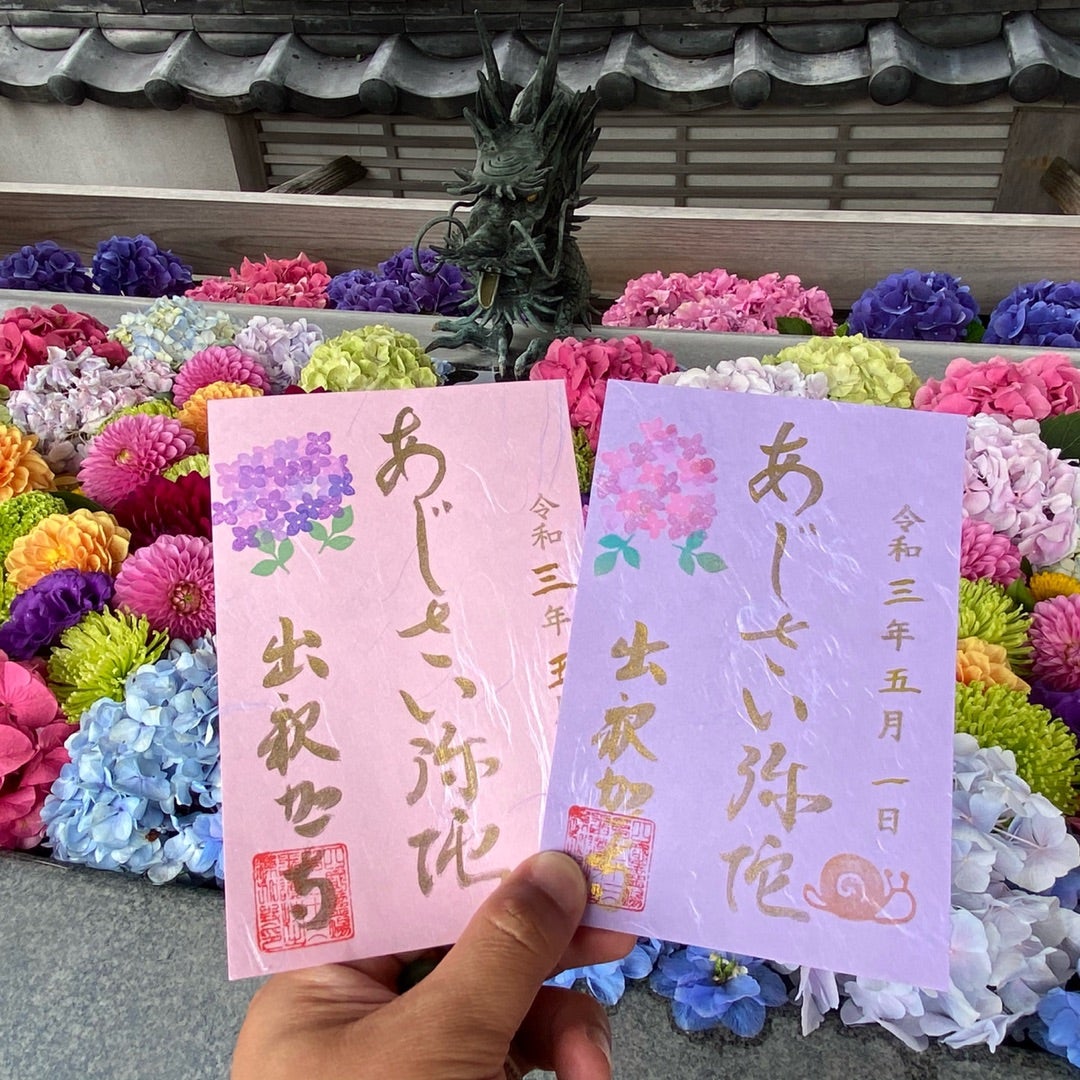 あじさい弥陀
令和三年五
出釈迦寺
令和三年五月一日
あじさい弥陀
出釈迦寺